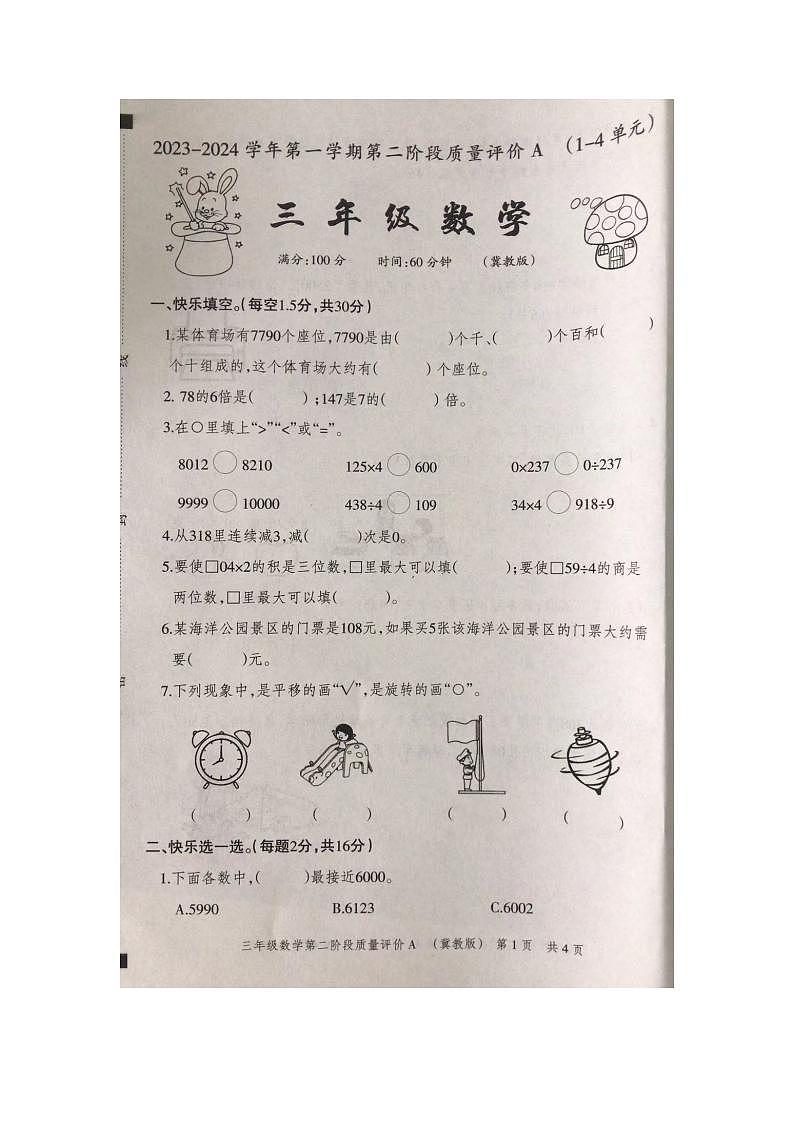 2023-2024学年第一学期第二阶段质量评价A (1-4单元)
三年级数学
满分:100分 时间:60分钟 (冀教版)
一、快乐填空。(每空1.5分,共30分)
1.某体育场有7790个座位,7790是由( )个千、( )个百和( )
个十组成的,这个体育场大约有( )个座位。
2. 78的6倍是( );147是7的( )倍。
3.在○里填上“>”“<”或“=”。
8012○8210 125×4○600 0×237○0÷237
9999○10000 438÷4○109 34×4○918÷9
4.从318里连续减3,减( )次是0。
5.要使□04×2的积是三位数,□里最大可以填( );要使□59÷4的商是
两位数,□里最大可以填( )。
6.某海洋公园景区的门票是108元,如果买5张该海洋公园景区的门票大约需
要( )元。
7.下列现象中,是平移的画“√”,是旋转的画“○”。
( ) ( ) ( ) ( )
二、快乐选一选。(每题2分,共16分)
1.下面各数中,( )最接近6000。
A.5990 B.6123 C.6002
三年级数学第二阶段质量评价A (冀教版) 第1页 共4页
线